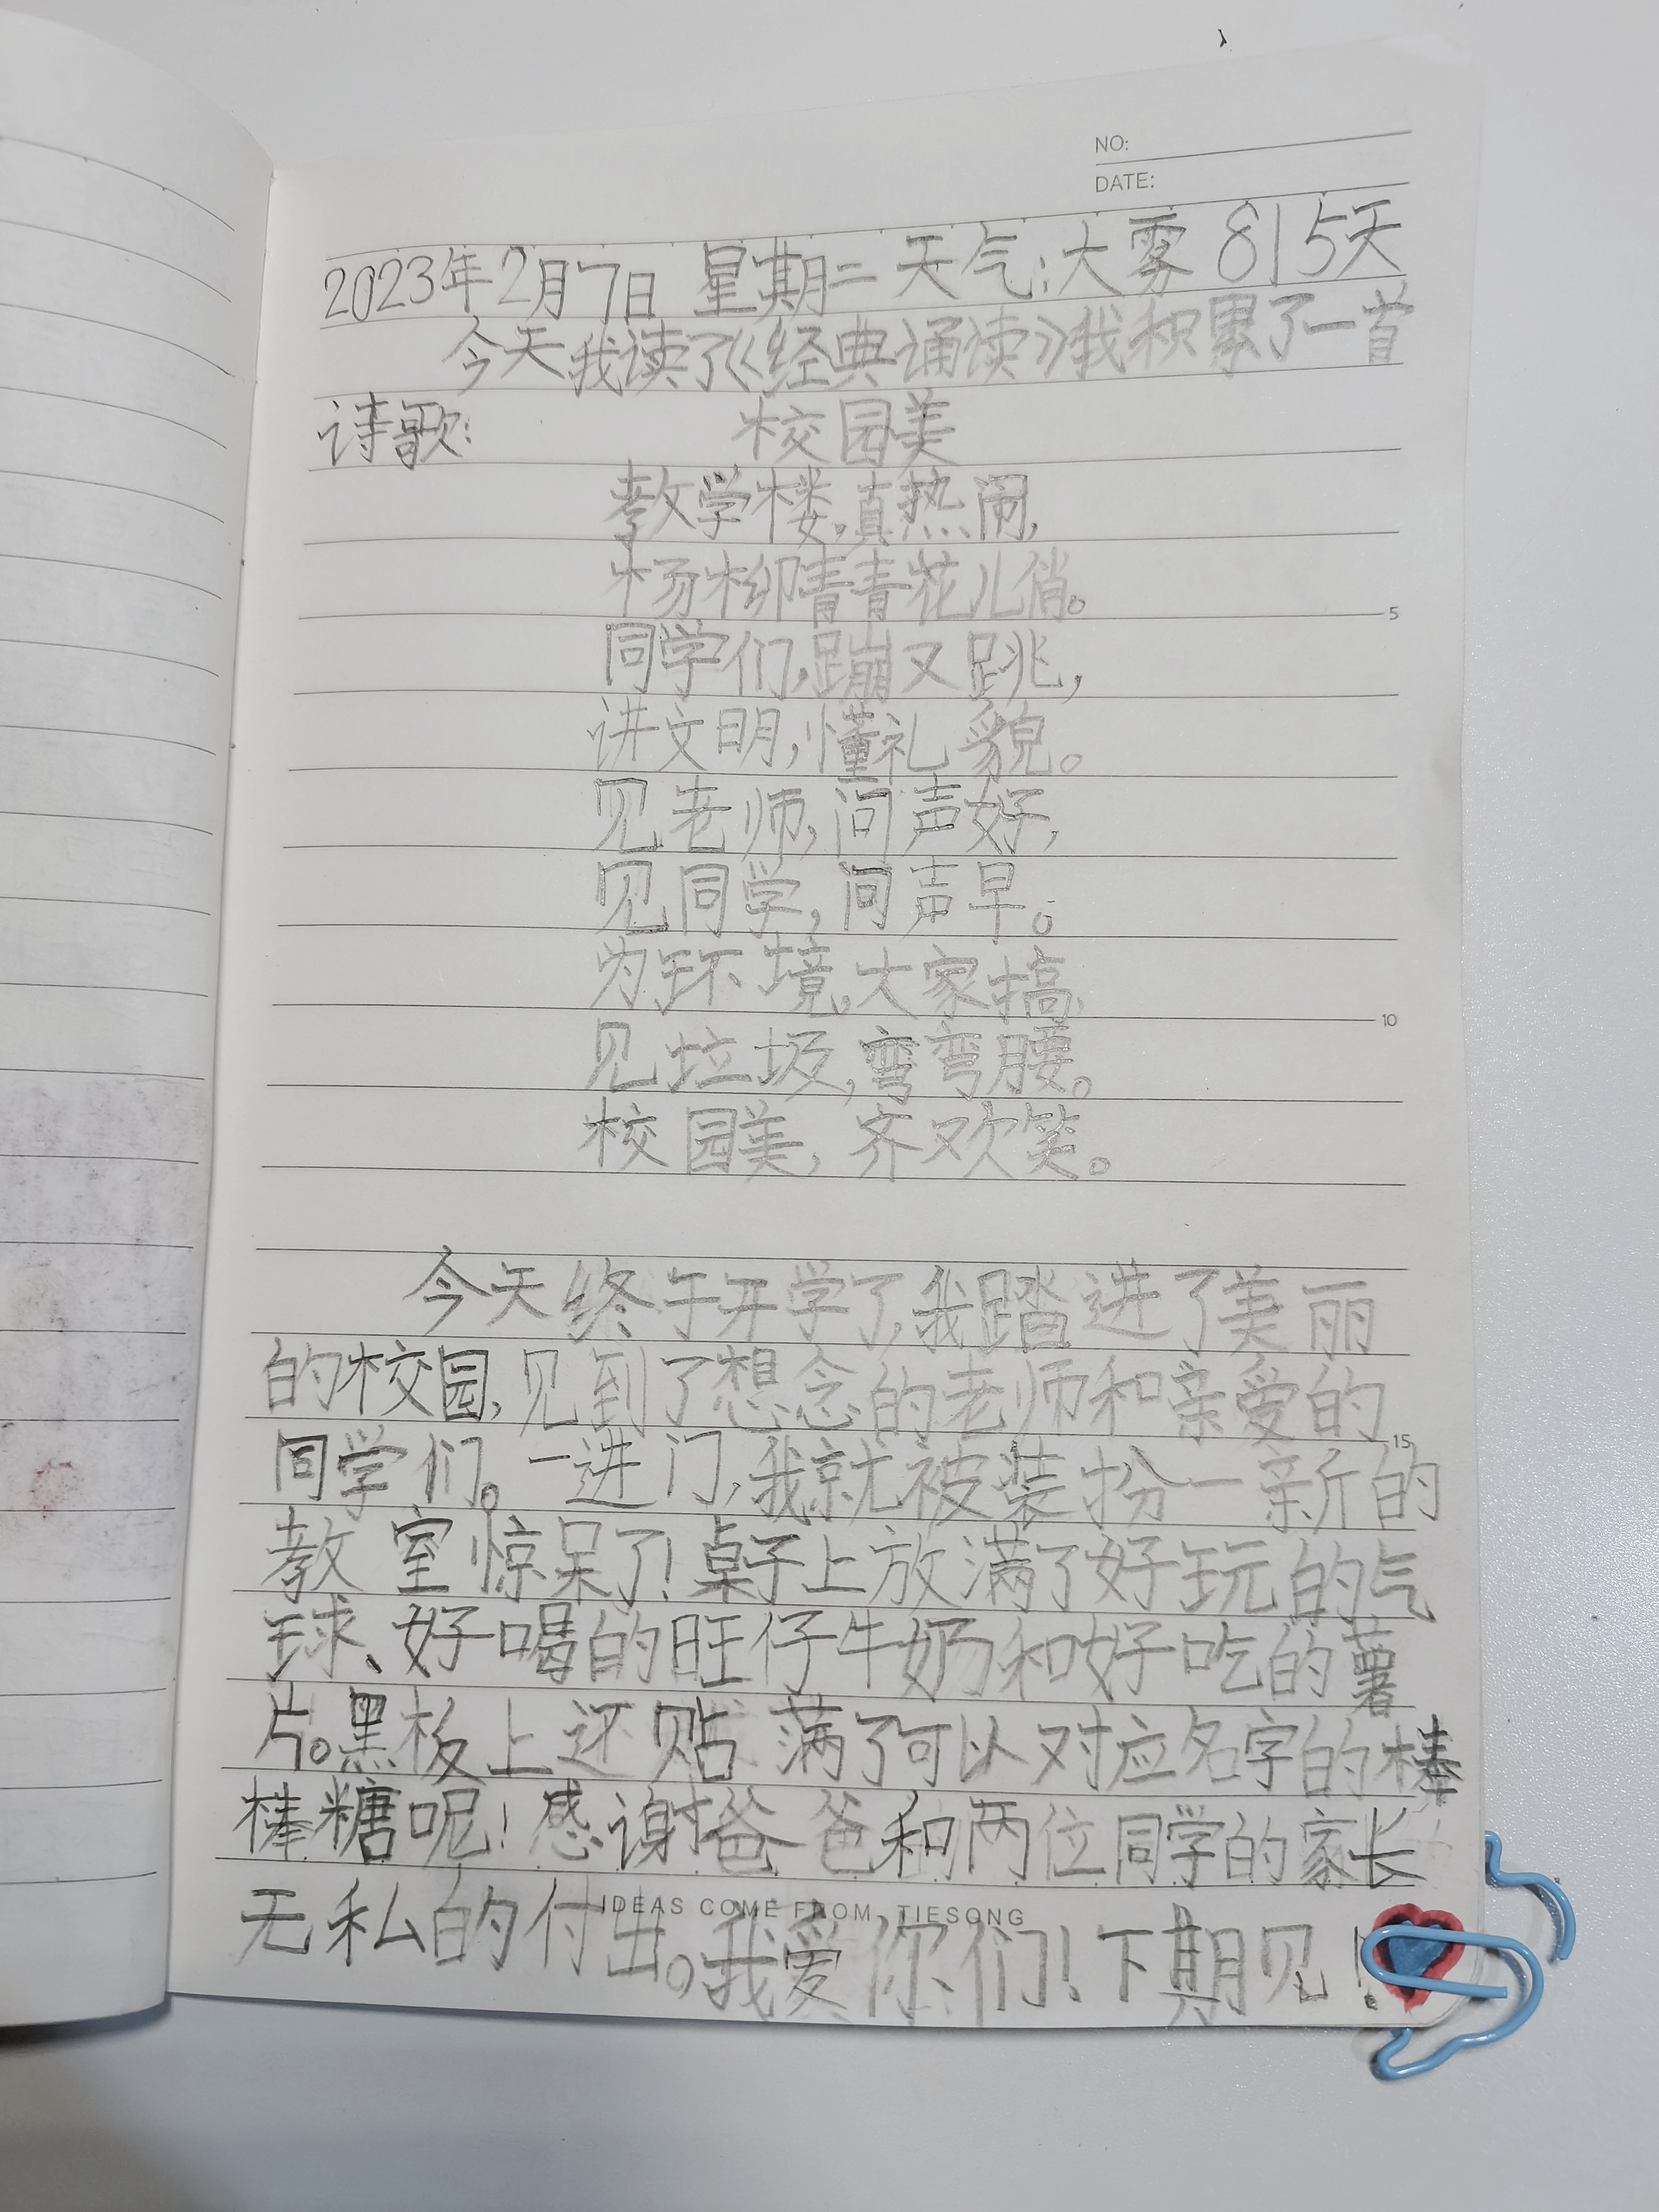 NO:
DATE:
2023年2月7日 星期二 天气:大雾 815天
今天我读了《经典诵读》我积累了一首
诗歌: 校园美
教学楼,真热闹,
杨柳青青花儿俏。
5
同学们,蹦又跳,
讲文明,懂礼貌。
见老师,问声好,
见同学,问声早。
为环境,大家搞,
10
见垃圾,弯弯腰。
校园美,齐欢笑。
今天终于开学了,我踏进了美丽
的校园,见到了想念的老师和亲爱的
15
同学们。一进门,我就被装扮一新的
教室惊呆了!桌子上放满了好玩的气
球、好喝的旺仔牛奶和好吃的薯
片。黑板上还贴满了可以对应名字的棒
棒糖呢!感谢爸爸和两位同学的家长
无私的付出。我爱你们!下期见!
IDEAS COME FROM TIESONG